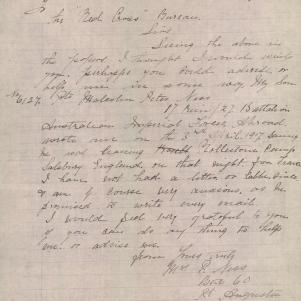 To
The "Red Cross" Bureau.
Sirs
Seeing the above in
the papers I thought I would write
you, perhaps you could advise or
help me in some way. My Son
No 6127. Pte Malcolm Peter Ness
17 Reinf/27 Battalion
Australian Imperial Force, Abroad.
wrote me on the 3rd Sept. 1917, saying
he was leaving Folkestone Camp
Salisbury England, on that night for France
I have not had a letter or cable, since
& am of course very anxious, as he
promised to write every mail.
I would feel very grateful to you
if you can do any thing to help
me. or advise me
from Yours truly
Mrs E. Ness
Box 60
Pt Augusta